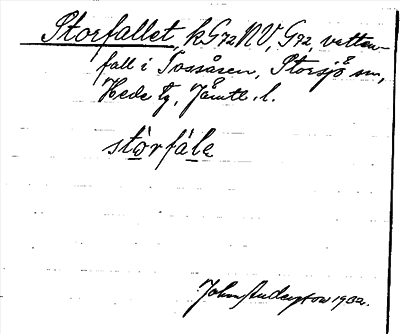 Storfallet, kG72NV, G72, vatten-
fall i Tossåsen, Storsjö sn,
Hede tg, Jämtl. l.
stòrfále
John Anderson 1932.